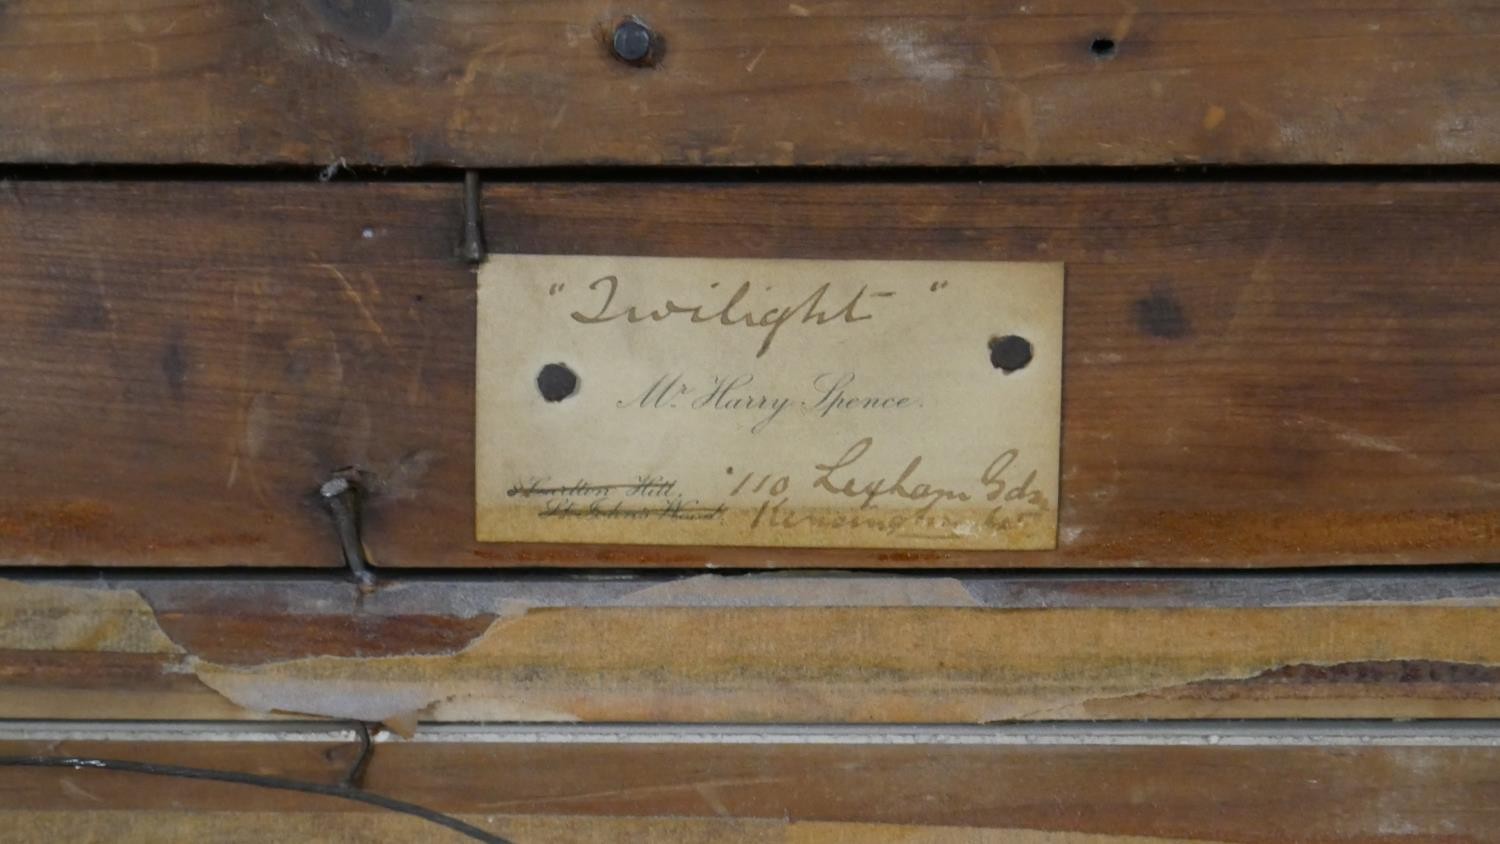 "Twilight"
Mr. Harry Spence.
Carlton Hill,
St. John's Wood.
110 Lexham Gdns
Kensington W